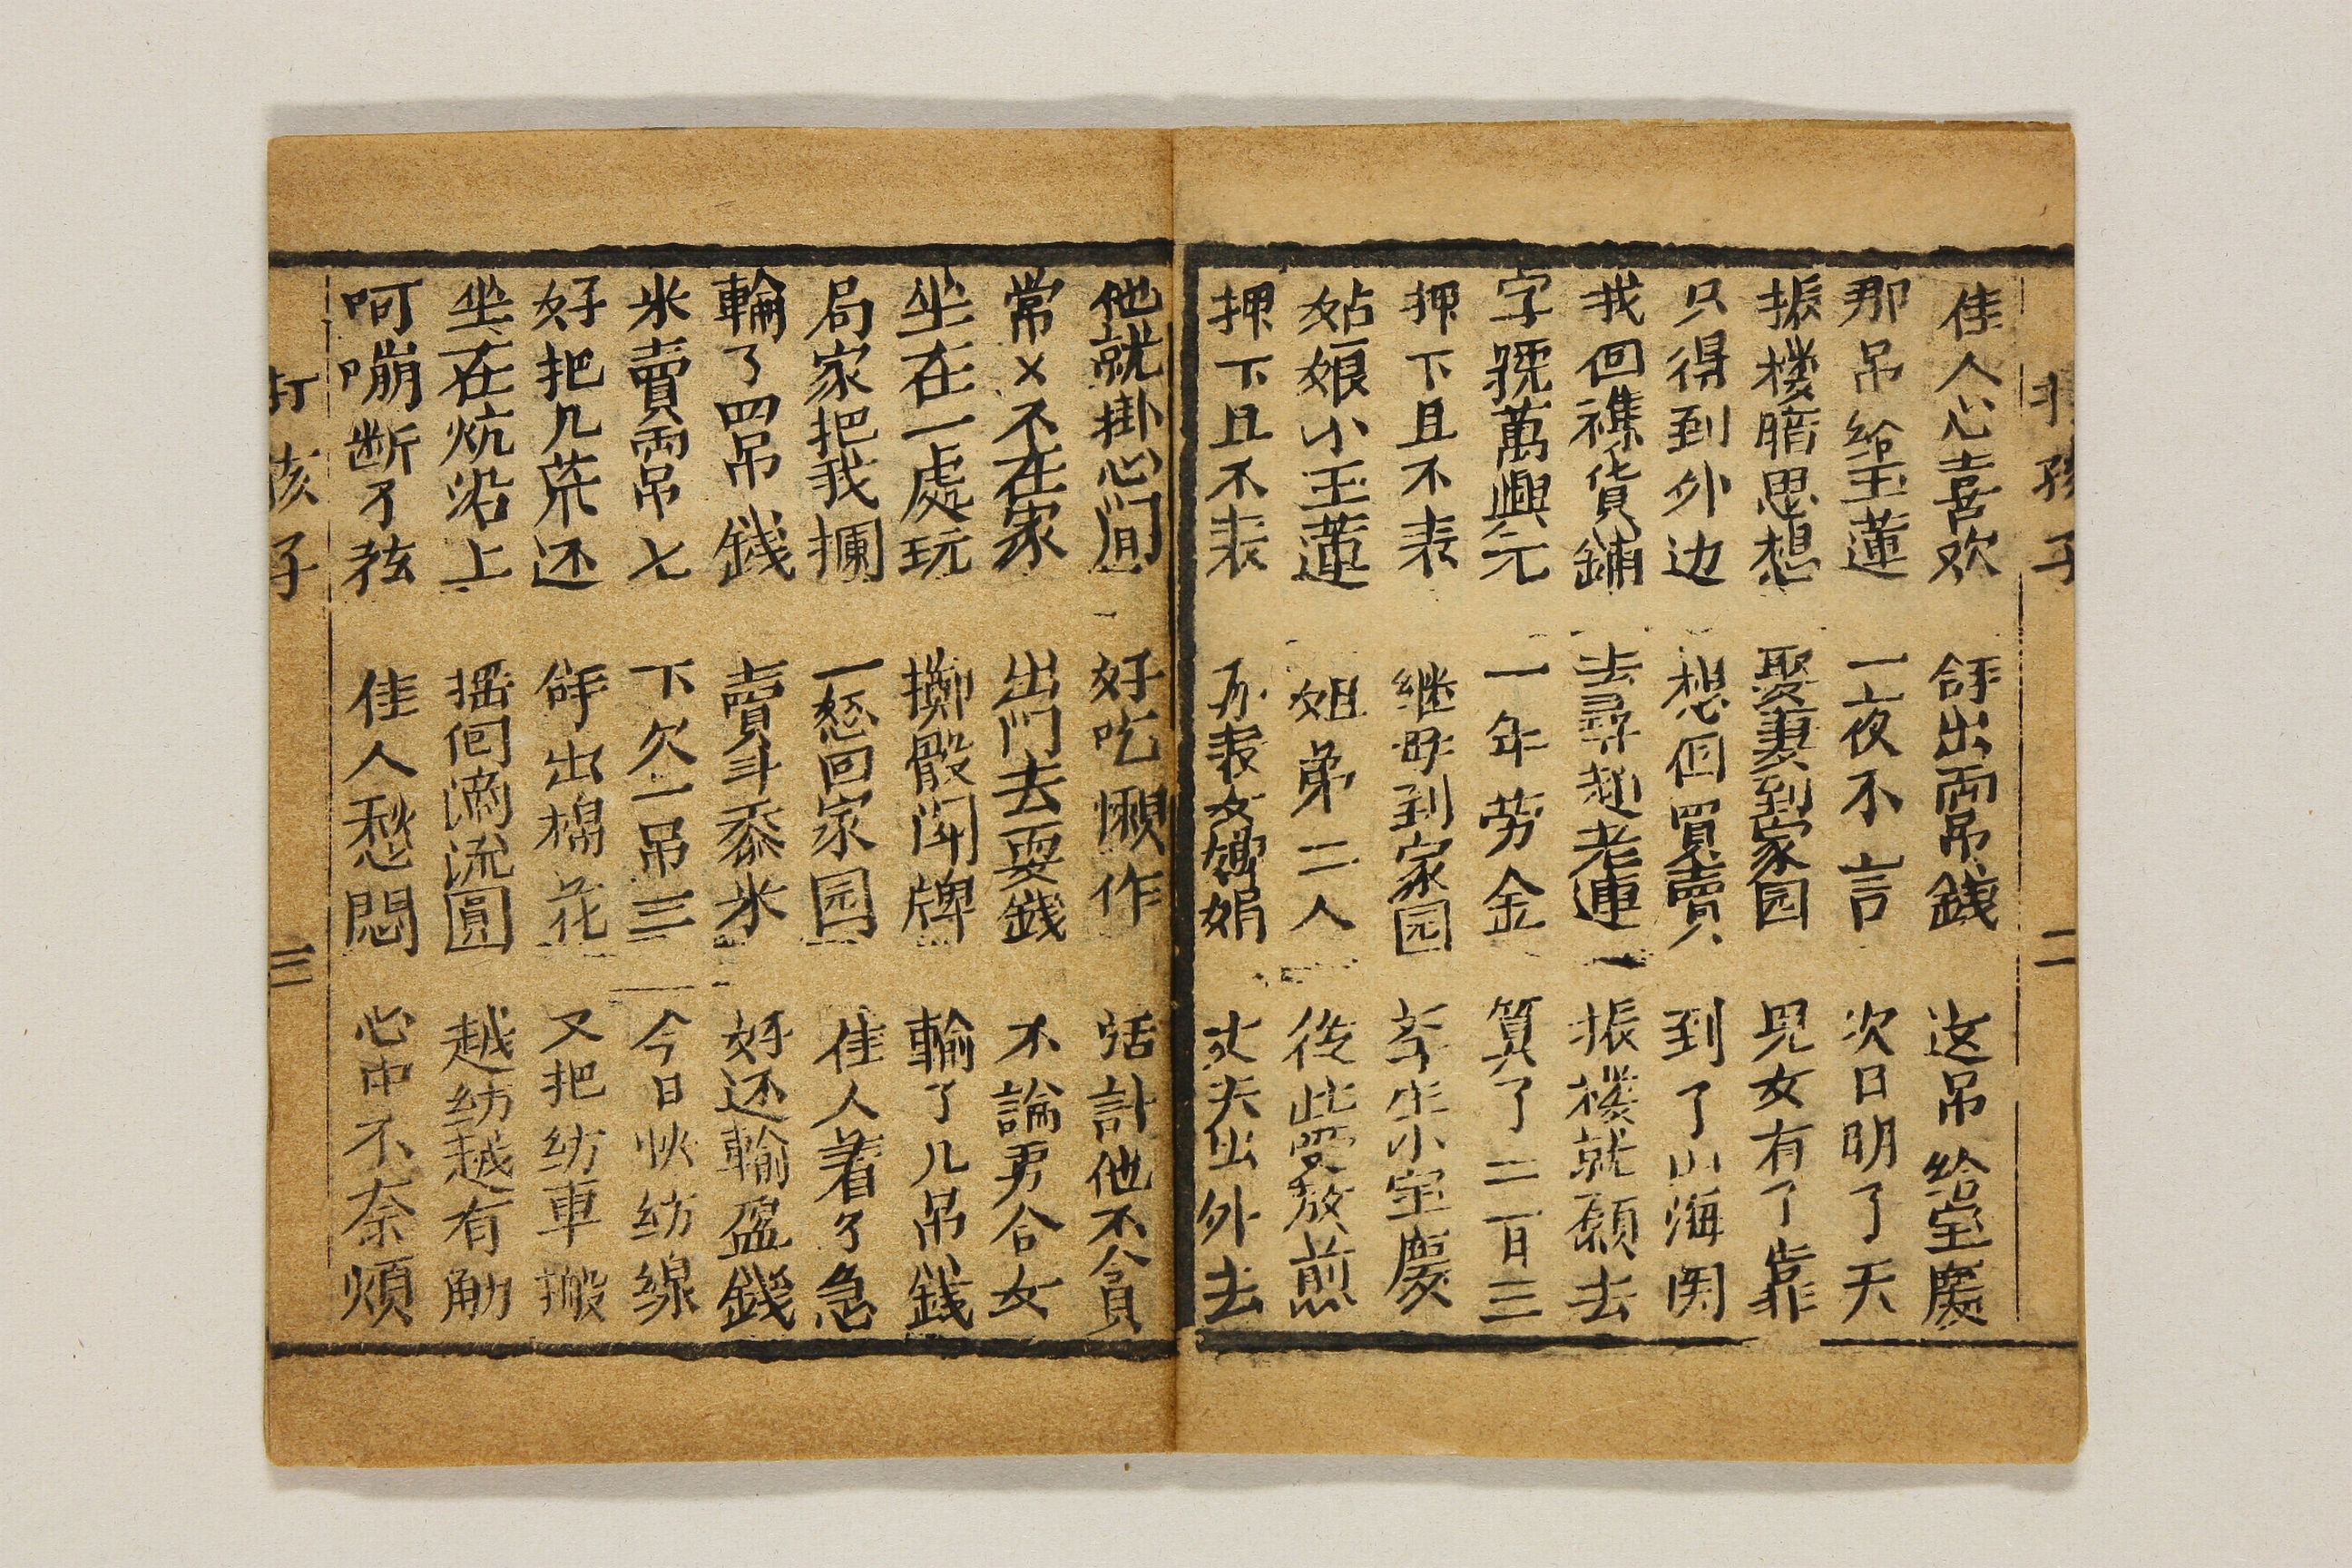 佳人心喜欢 𢪉出両吊錢 这吊給宝慶
那吊給玉蓮 一夜不言 次日明了天
振楼暗思想 娶妻到家园 児女有了靠
只得到外边 想個買賣 到了山海関
我回襍貨鋪 去尋趙老連 振楼就願去
字號萬興元 一年劳金 算了二百三
押下且不表 继母到家园 李生小宝慶
姑娘小玉蓮 姐弟二人 後此受熬煎
押下且不表 再表女嬋娟 丈夫出外去
他就掛心间 好吃懶作 活計他不貪
常×不在家 出门去耍錢 不論男合女
坐在一處玩 擲骰闹牌 輸了几吊錢
局家把我攔 一怒回家园 佳人着了急
輪了四吊錢 賣斗黍米 好还輸盈錢
米賣両吊七 下欠一吊三 今日伙纺線
好把几荒还 𢪉出棉花 又把纺車搬
坐在炕沿上 揺個滴流圓 越纺越有觔
呵嘣断了弦 佳人愁悶 心中不奈煩
打孩子 三